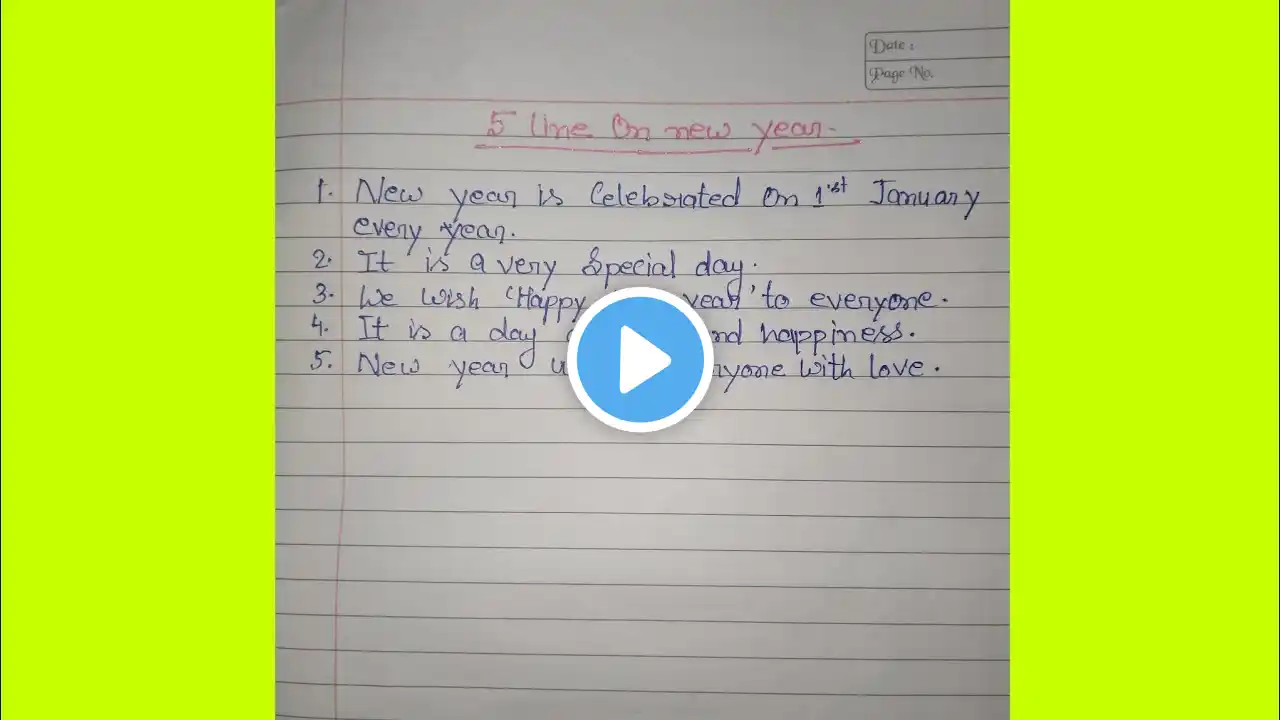 Date :
Page No.
5 line On new year.
1. New year is Celebrated on 1st January
every year.
2. It is a very Special day.
3. We wish 'Happy year' to everyone.
4. It is a day happiness.
5. New year with love.